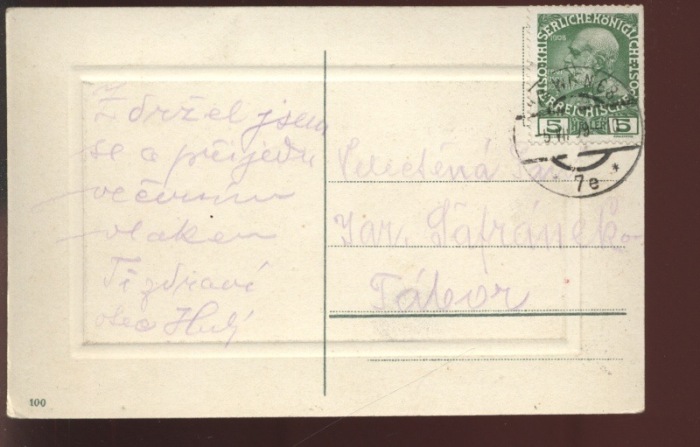 Zdržel jsem
se a přijedu
večerním
vlakem
Tě zdraví
Velectěná
Jar. Šafránek
Tábor
1908
KAISERLICHE KÖNIGLICHE
ÖSTERREICHISCHE
5 HELLER 5
7e
100